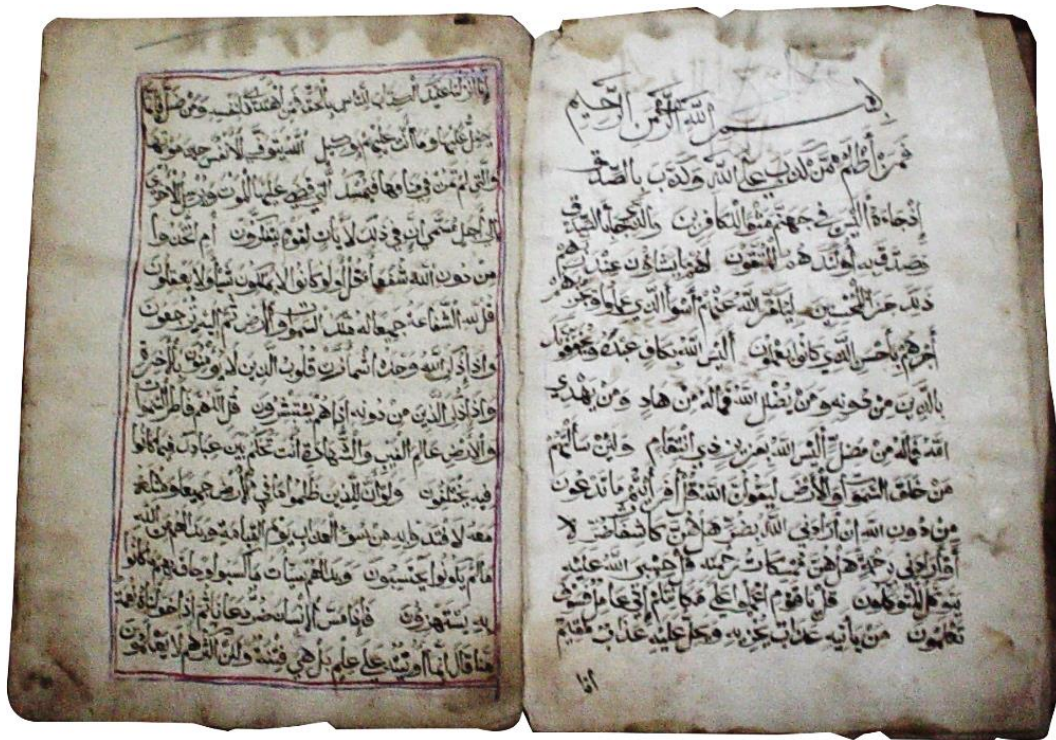 بسم الله الرحمن الرحيم
فَمَنْ أَظْلَمُ مِمَّنْ كَذَبَ عَلَى اللَّهِ وَكَذَّبَ بِالصِّدْقِ
إِذْ جَاءَهُ أَلَيْسَ فِي جَهَنَّمَ مَثْوًى لِلْكَافِرِينَ وَالَّذِي جَاءَ بِالصِّدْقِ
وَصَدَّقَ بِهِ أُولَئِكَ هُمُ الْمُتَّقُونَ لَهُمْ مَا يَشَاءُونَ عِنْدَ رَبِّهِمْ
ذَلِكَ جَزَاءُ الْمُحْسِنِينَ لِيُكَفِّرَ اللَّهُ عَنْهُمْ أَسْوَأَ الَّذِي عَمِلُوا وَيَجْزِيَهُمْ
أَجْرَهُمْ بِأَحْسَنِ الَّذِي كَانُوا يَعْمَلُونَ أَلَيْسَ اللَّهُ بِكَافٍ عَبْدَهُ وَيُخَوِّفُونَكَ
بِالَّذِينَ مِنْ دُونِهِ وَمَنْ يُضْلِلِ اللَّهُ فَمَا لَهُ مِنْ هَادٍ وَمَنْ يَهْدِي
اللَّهُ فَمَا لَهُ مِنْ مُضِلٍّ أَلَيْسَ اللَّهُ بِعَزِيزٍ ذِي انْتِقَامٍ وَلَئِنْ سَأَلْتَهُمْ
مَنْ خَلَقَ السَّمَوَاتِ وَالْأَرْضَ لَيَقُولُنَّ اللَّهُ قُلْ أَفَرَأَيْتُمْ مَا تَدْعُونَ
مِنْ دُونِ اللَّهِ إِنْ أَرَادَنِيَ اللَّهُ بِضُرٍّ هَلْ هُنَّ كَاشِفَاتُ ضُرِّهِ
أَوْ أَرَادَنِي بِرَحْمَةٍ هَلْ هُنَّ مُمْسِكَاتُ رَحْمَتِهِ قُلْ حَسْبِيَ اللَّهُ عَلَيْهِ
يَتَوَكَّلُ الْمُتَوَكِّلُونَ قُلْ يَا قَوْمِ اعْمَلُوا عَلَى مَكَانَتِكُمْ إِنِّي عَامِلٌ فَسَوْفَ
تَعْلَمُونَ مَنْ يَأْتِيهِ عَذَابٌ يُخْزِيهِ وَيَحِلُّ عَلَيْهِ عَذَابٌ مُقِيمٌ
انا
إِنَّا أَنْزَلْنَا عَلَيْكَ الْكِتَابَ لِلنَّاسِ بِالْحَقِّ فَمَنِ اهْتَدَى فَلِنَفْسِهِ وَمَنْ ضَلَّ فَإِنَّمَا
يَضِلُّ عَلَيْهَا وَمَا أَنْتَ عَلَيْهِمْ بِوَكِيلٍ اللَّهُ يَتَوَفَّى الْأَنْفُسَ حِينَ مَوْتِهَا
وَالَّتِي لَمْ تَمُتْ فِي مَنَامِهَا فَيُمْسِكُ الَّتِي قَضَى عَلَيْهَا الْمَوْتَ وَيُرْسِلُ الْأُخْرَى
إِلَى أَجَلٍ مُسَمًّى إِنَّ فِي ذَلِكَ لَآيَاتٍ لِقَوْمٍ يَتَفَكَّرُونَ أَمِ اتَّخَذُوا
مِنْ دُونِ اللَّهِ شُفَعَاءَ قُلْ أَوَلَوْ كَانُوا لَا يَمْلِكُونَ شَيْئًا وَلَا يَعْقِلُونَ
قُلْ لِلَّهِ الشَّفَاعَةُ جَمِيعًا لَهُ مُلْكُ السَّمَوَاتِ وَالْأَرْضِ ثُمَّ إِلَيْهِ تُرْجَعُونَ
وَإِذَا ذُكِرَ اللَّهُ وَحْدَهُ اشْمَأَزَّتْ قُلُوبُ الَّذِينَ لَا يُؤْمِنُونَ بِالْآخِرَةِ
وَإِذَا ذُكِرَ الَّذِينَ مِنْ دُونِهِ إِذَا هُمْ يَسْتَبْشِرُونَ قُلِ اللَّهُمَّ فَاطِرَ السَّمَوَاتِ
وَالْأَرْضِ عَالِمَ الْغَيْبِ وَالشَّهَادَةِ أَنْتَ تَحْكُمُ بَيْنَ عِبَادِكَ فِيمَا كَانُوا
فِيهِ يَخْتَلِفُونَ وَلَوْ أَنَّ لِلَّذِينَ ظَلَمُوا مَا فِي الْأَرْضِ جَمِيعًا وَمِثْلَهُ
مَعَهُ لَافْتَدَوْا بِهِ مِنْ سُوءِ الْعَذَابِ يَوْمَ الْقِيَامَةِ وَبَدَا لَهُمْ مِنَ اللَّهِ
مَا لَمْ يَكُونُوا يَحْتَسِبُونَ وَبَدَا لَهُمْ سَيِّئَاتُ مَا كَسَبُوا وَحَاقَ بِهِمْ مَا كَانُوا
بِهِ يَسْتَهْزِءُونَ فَإِذَا مَسَّ الْإِنْسَانَ ضُرٌّ دَعَانَا ثُمَّ إِذَا خَوَّلْنَاهُ نِعْمَةً
مِنَّا قَالَ إِنَّمَا أُوتِيتُهُ عَلَى عِلْمٍ بَلْ هِيَ فِتْنَةٌ وَلَكِنَّ أَكْثَرَهُمْ لَا يَعْلَمُونَ